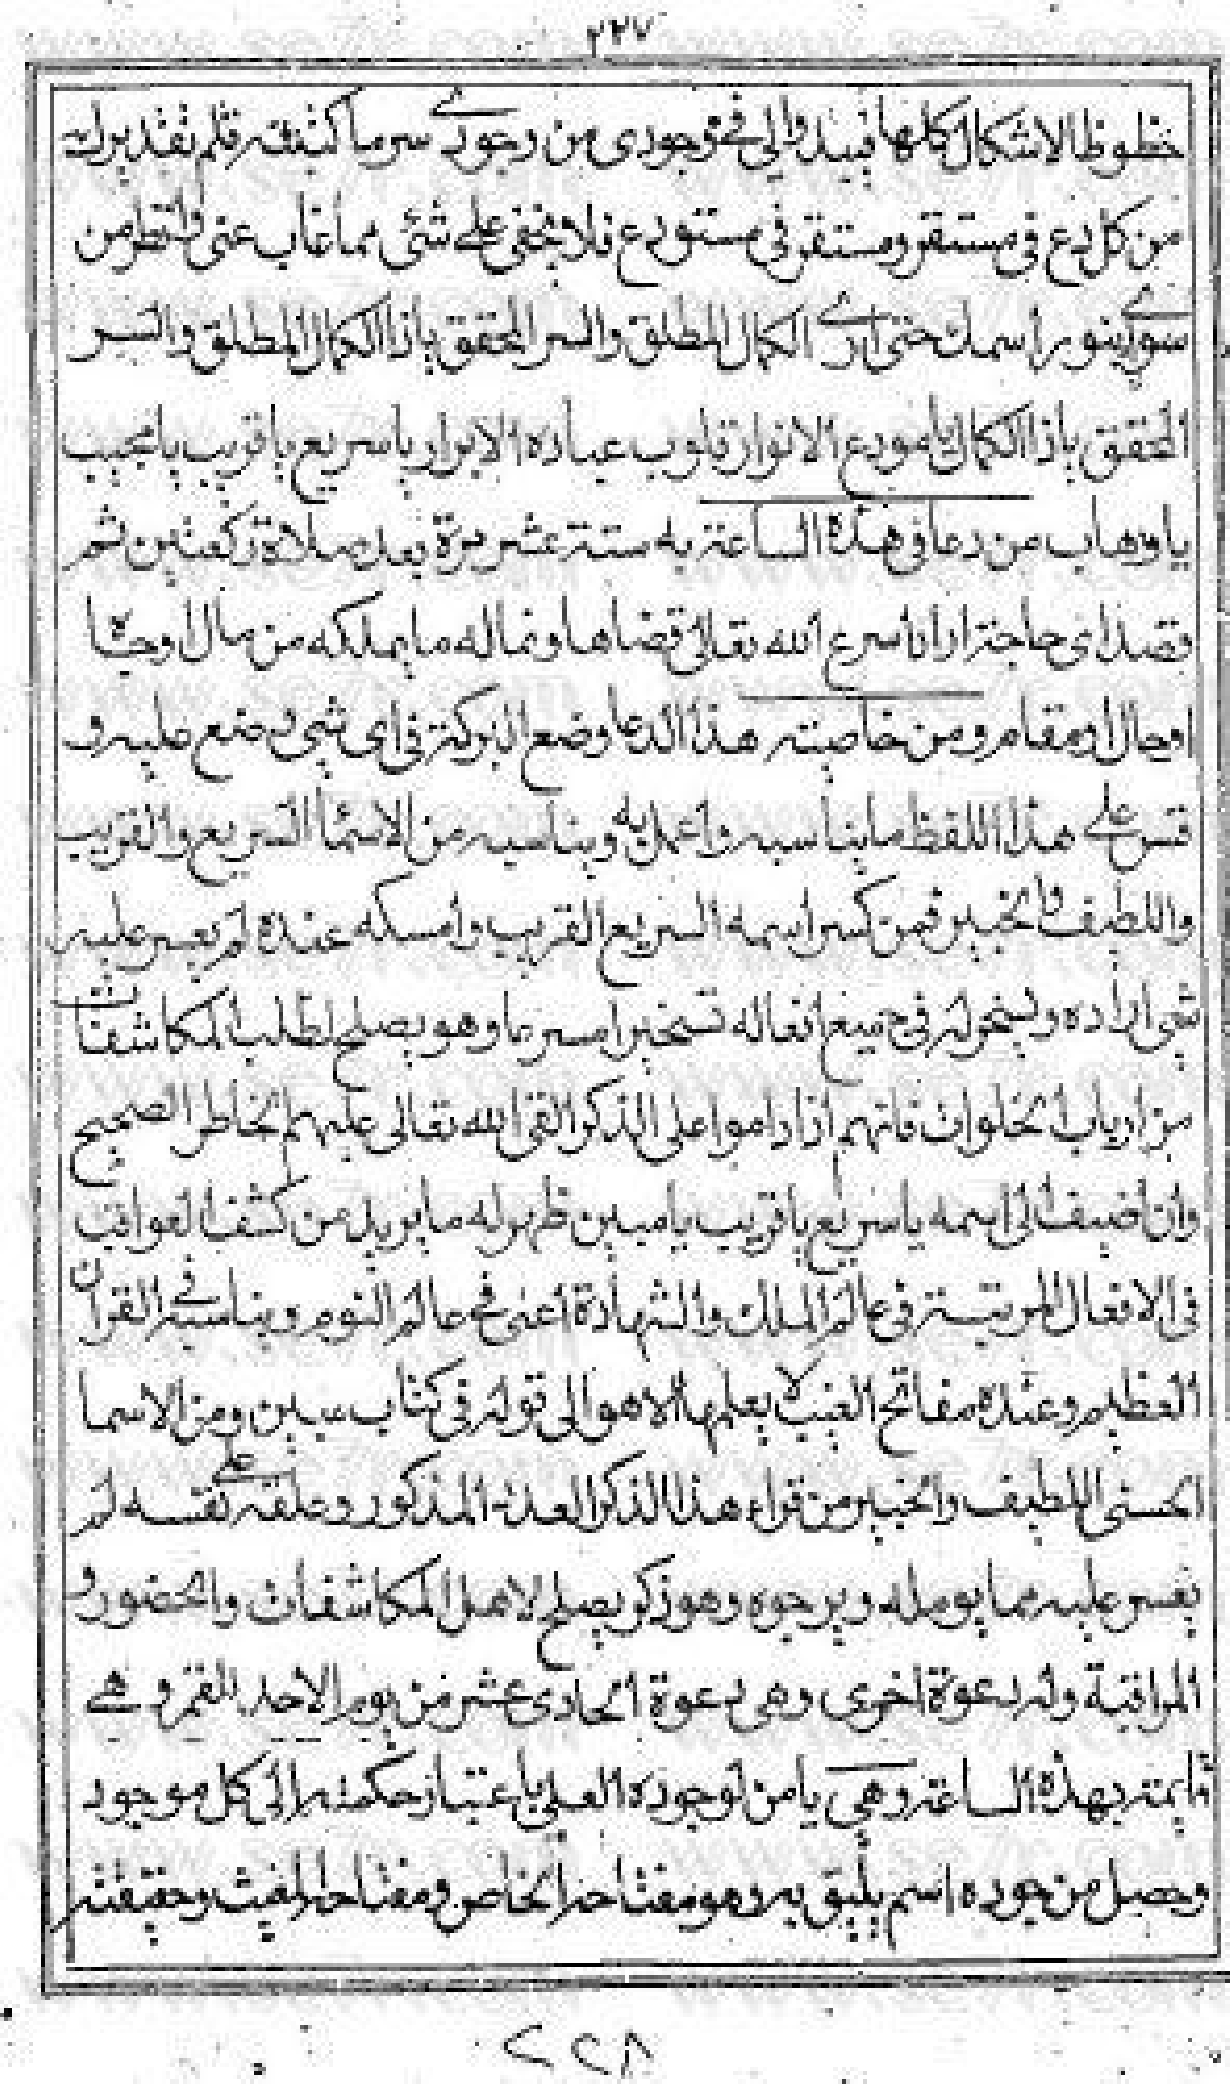 ٢٢٧
خطوط الاشكال كلها فيبدوا لي في وجودي من وجودي سر ما كتبته قلم تقديرك
من كل دع في مستقر ومستقر في مستودع فلا يخفى علي شئ مما غاب عني وانتظر من
سوى بنور اسمك حتى ارى الكمال المطلق والسر المحقق ياذا الكمال المطلق والسر
المحقق ياذا الكمال يا مودع الانوار قلوب عباده الابرار يا سريع يا قريب يا مجيب
يا وهاب من دعا في هذه الساعة به ستة عشر مرة بعد صلاة ركعتين ثم
قصد اى حاجة اراد اسرع الله تعالى قضاها ونما له ما يملكه من مال او جاه
او حال او مقام ومن خاصيته هذا الدعا وضع البركة في اى شئ وضع عليه و
قس على هذا اللفظ ما يناسبه واعمل به ويناسبه من الاسما السريع والقريب
واللطيف والخبير فمن كسر اسمه السريع القريب وامسكه عنده لم يعسر عليه
شئ اراده وينجو له في جميع افعاله تسخير امير ما وهو يصلح لطلب المكاشفات
من ارباب الخلوات فانهم اذا داموا على الذكر القى الله تعالى عليهم الخاطر الصحيح
وان اضيف الى اسمه يا سريع يا قريب يا مبين ظهر له ما يريد من كشف العواقب
في الافعال المرتبة في عالم الملك والشهادة اعنى في عالم النوم ويناسبه في القران
العظيم وعنده مفاتح الغيب لا يعلمها الا هو الى قوله في كتاب مبين ومن الاسما
الحسنى اللطيف والخبير من قراء هذا الذكر العدد المذكور وعلقه على نفسه لم
يعسر عليه مما يومله ويرجوه وهو ذكر يصلح لاهل المكاشفات والحضور و
المراقبة وله دعوة اخرى وهى دعوة الحادى عشر من يوم الاحد للقمر وهى
قايمة بهذه الساعة وهى يا من لوجوده العلى باعتبار حكمته الى كل موجود
وحصل من جوده اسم يليق به وهو مفتاحه الخاص ومفتاح الغيث وحقيقته
٢٢٨